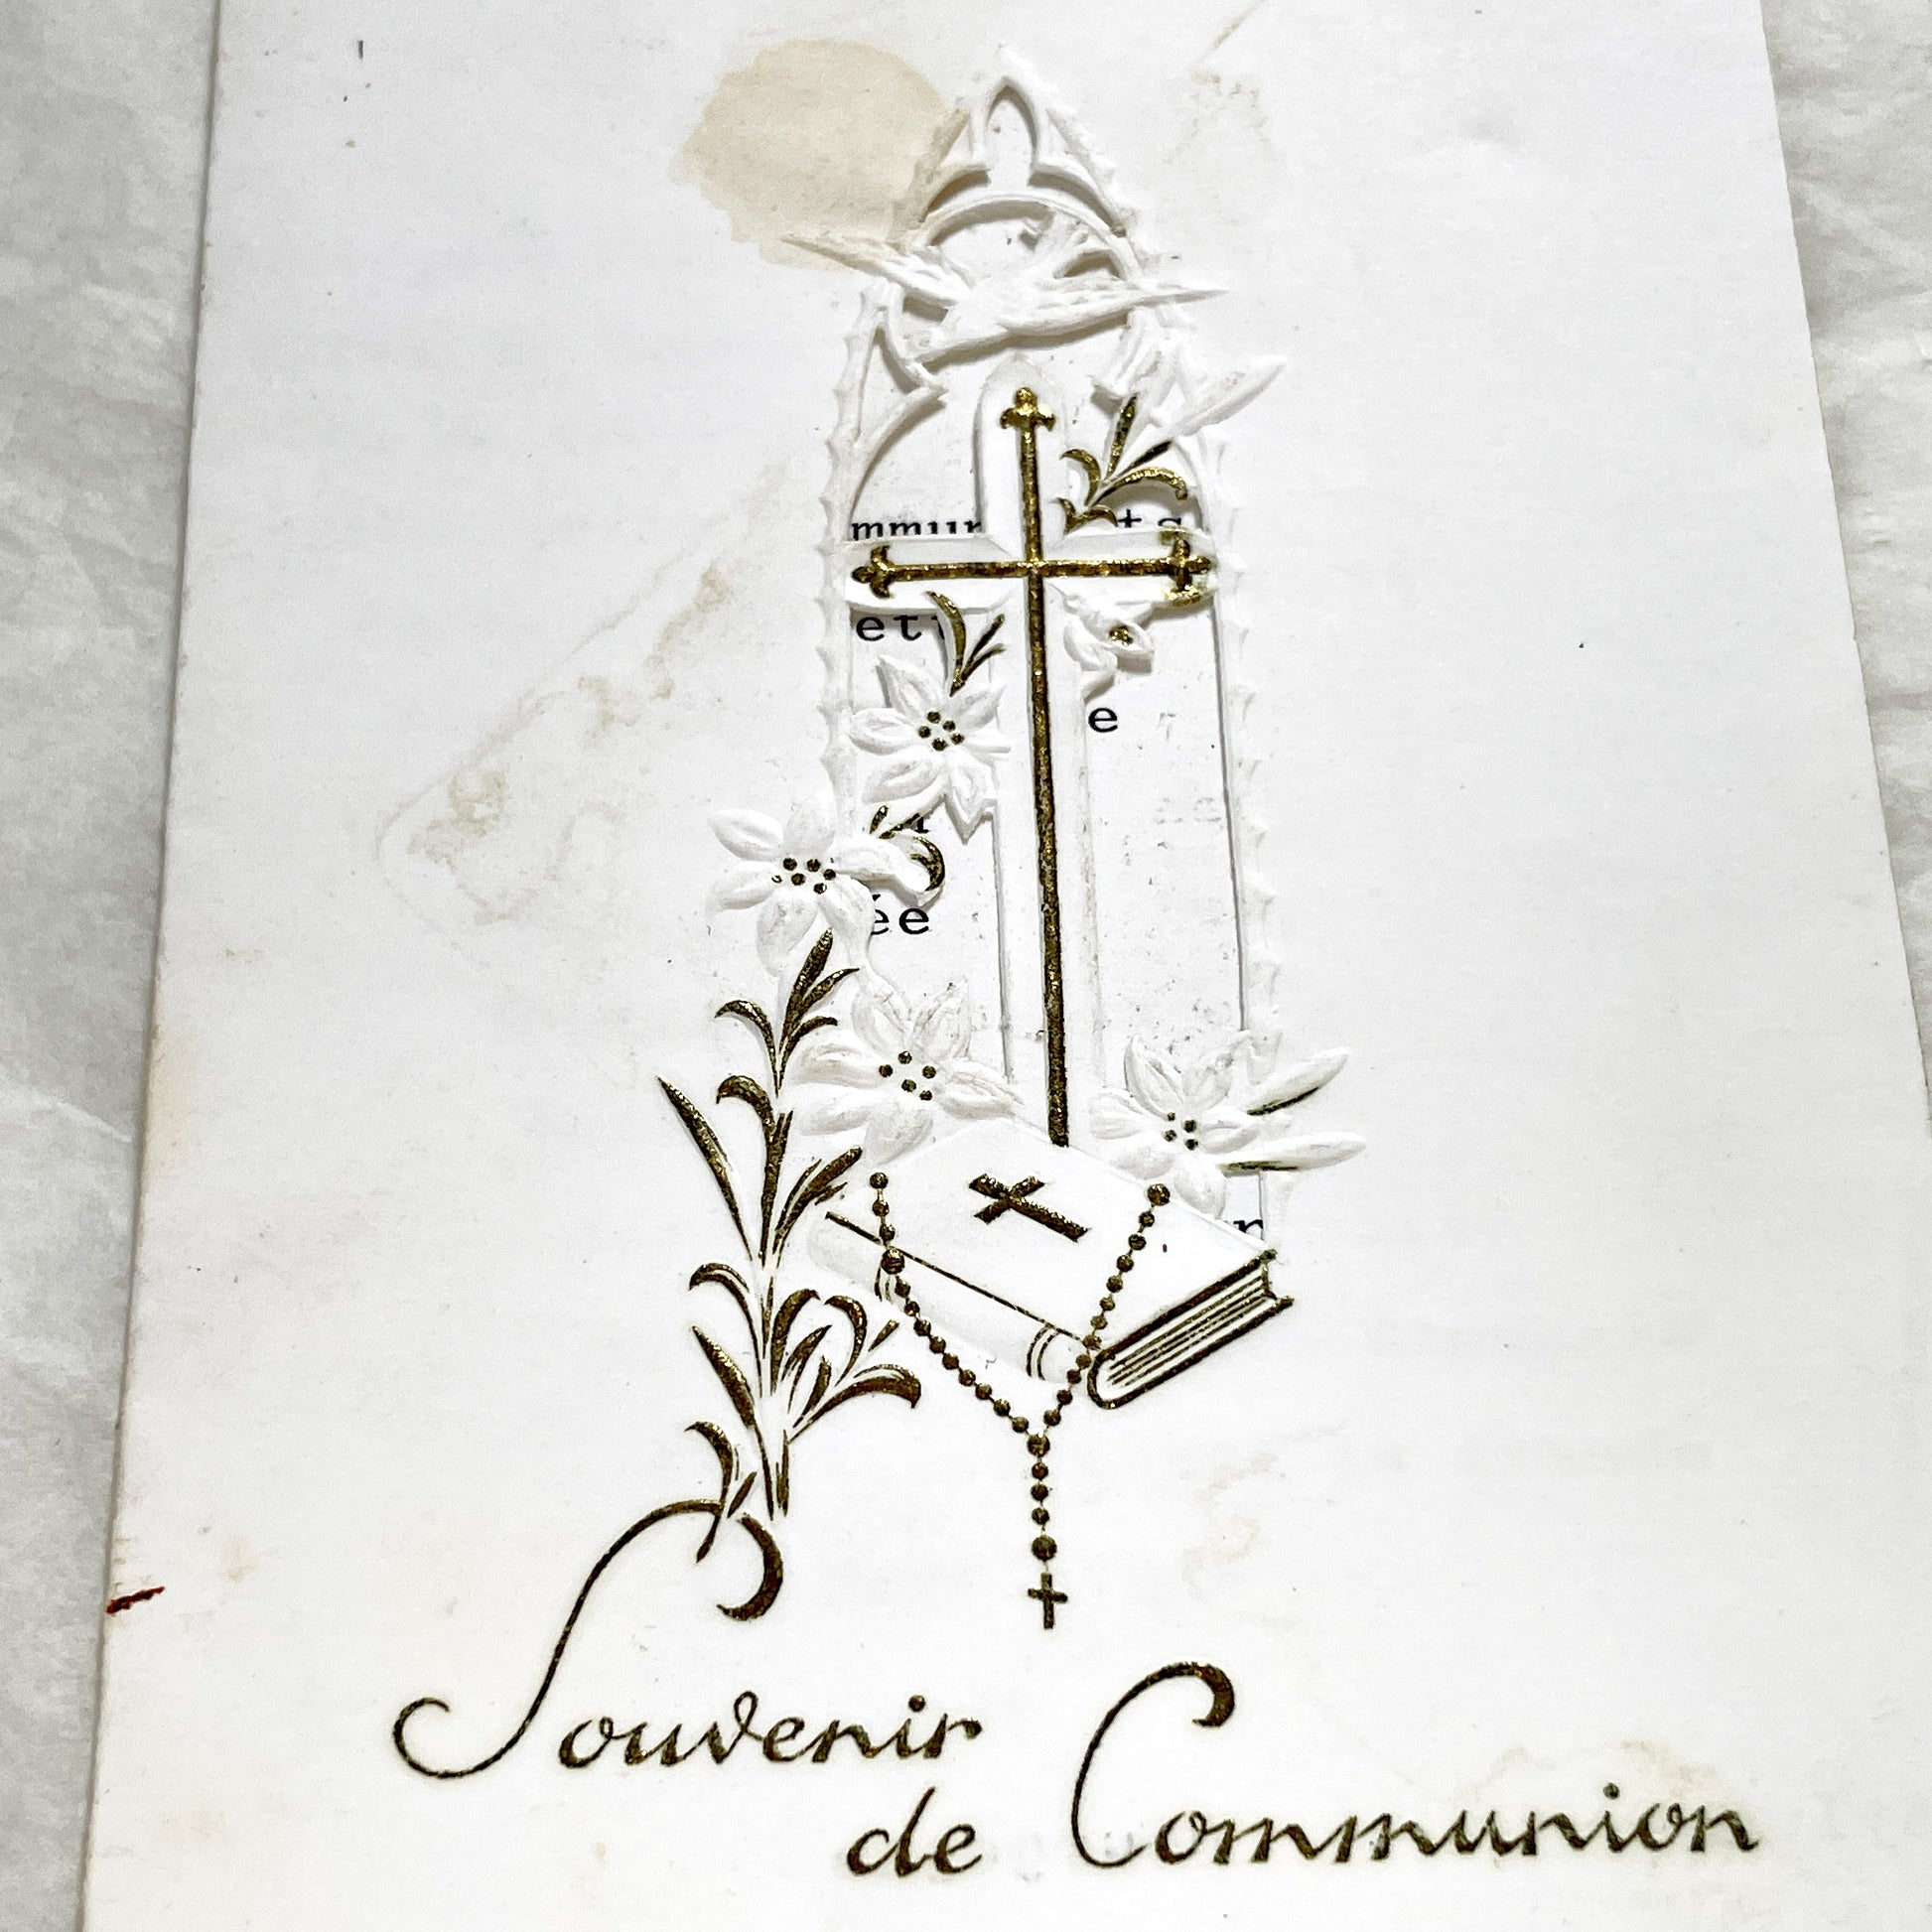 mmun ts
ette
e
ée
Souvenir
de Communion